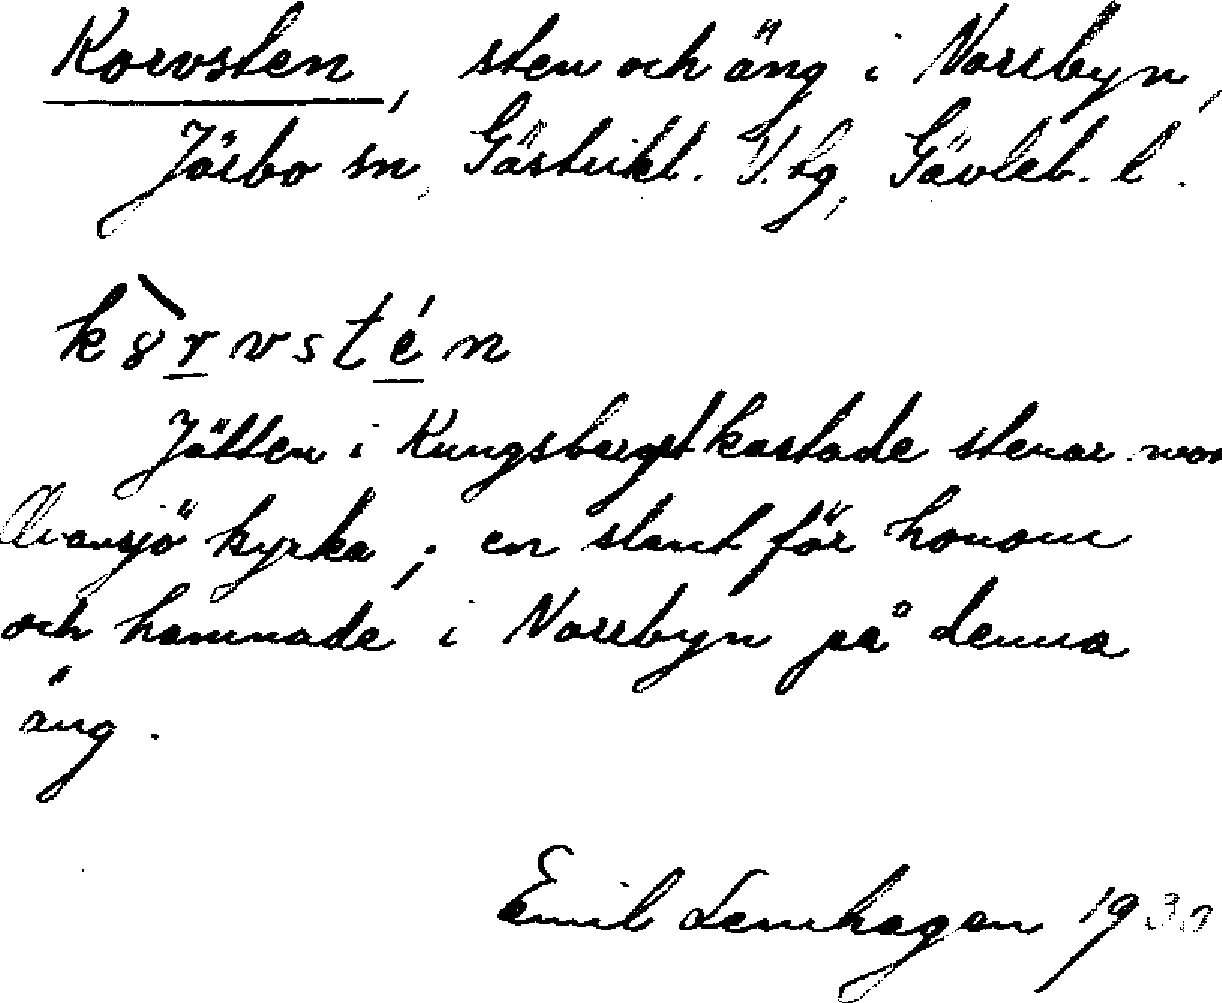 Korvsten, sten och äng i Norrbyn,
Järbo sn, Gästrikl. V. tg, Gävleb. l.
kȣ̀rvstén
Jätten i Kungsberget kastade stenar mot
Ovansjö kyrka; en slant för honom
och hamnade i Norrbyn på denna
äng.
Emil Lenhagen 1930